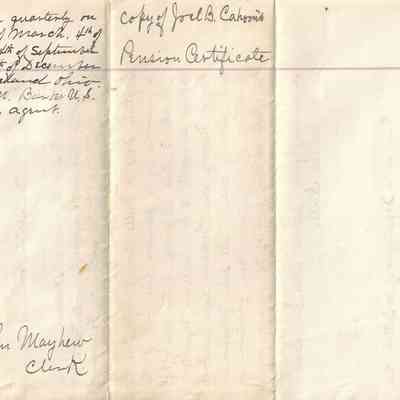 quarterly on
of March, 4th of
4th of September
of December
Ohio.
Barker U.S.
agent.
Mayhew
Clerk
Copy of Joel B. Cahoon's
Pension Certificate